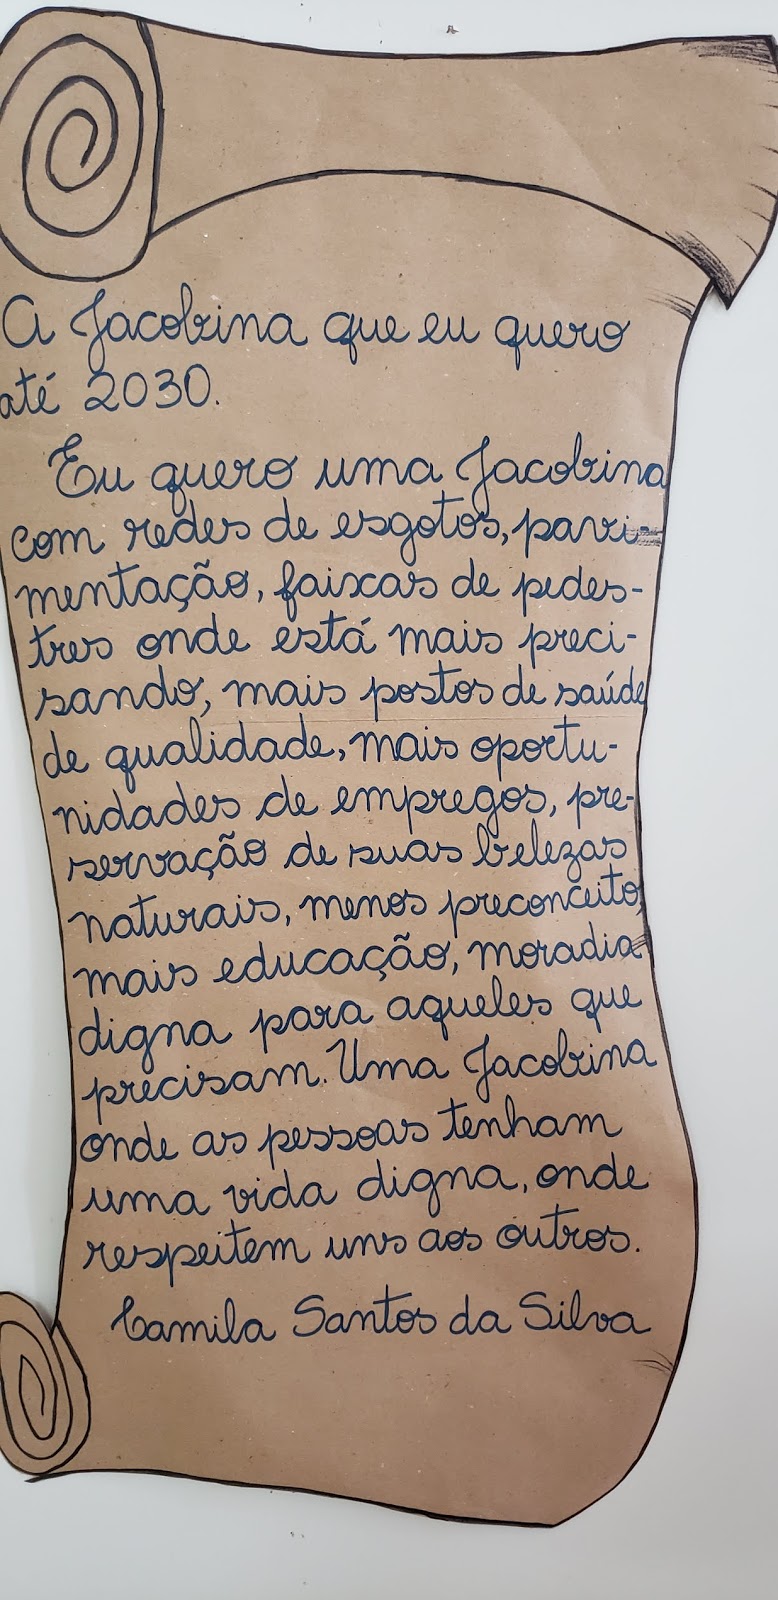 A Jacobina que eu quero
até 2030.
Eu quero uma Jacobina
com redes de esgotos, pavi-
mentação, faixas de pedes-
tres onde está mais preci-
sando, mais postos de saúde
de qualidade, mais oportu-
nidades de empregos, pre-
servação de suas belezas
naturais, menos preconceito,
mais educação, moradia
digna para aqueles que
precisam. Uma Jacobina
onde as pessoas tenham
uma vida digna, onde
respeitem uns aos outros.
Camila Santos da Silva